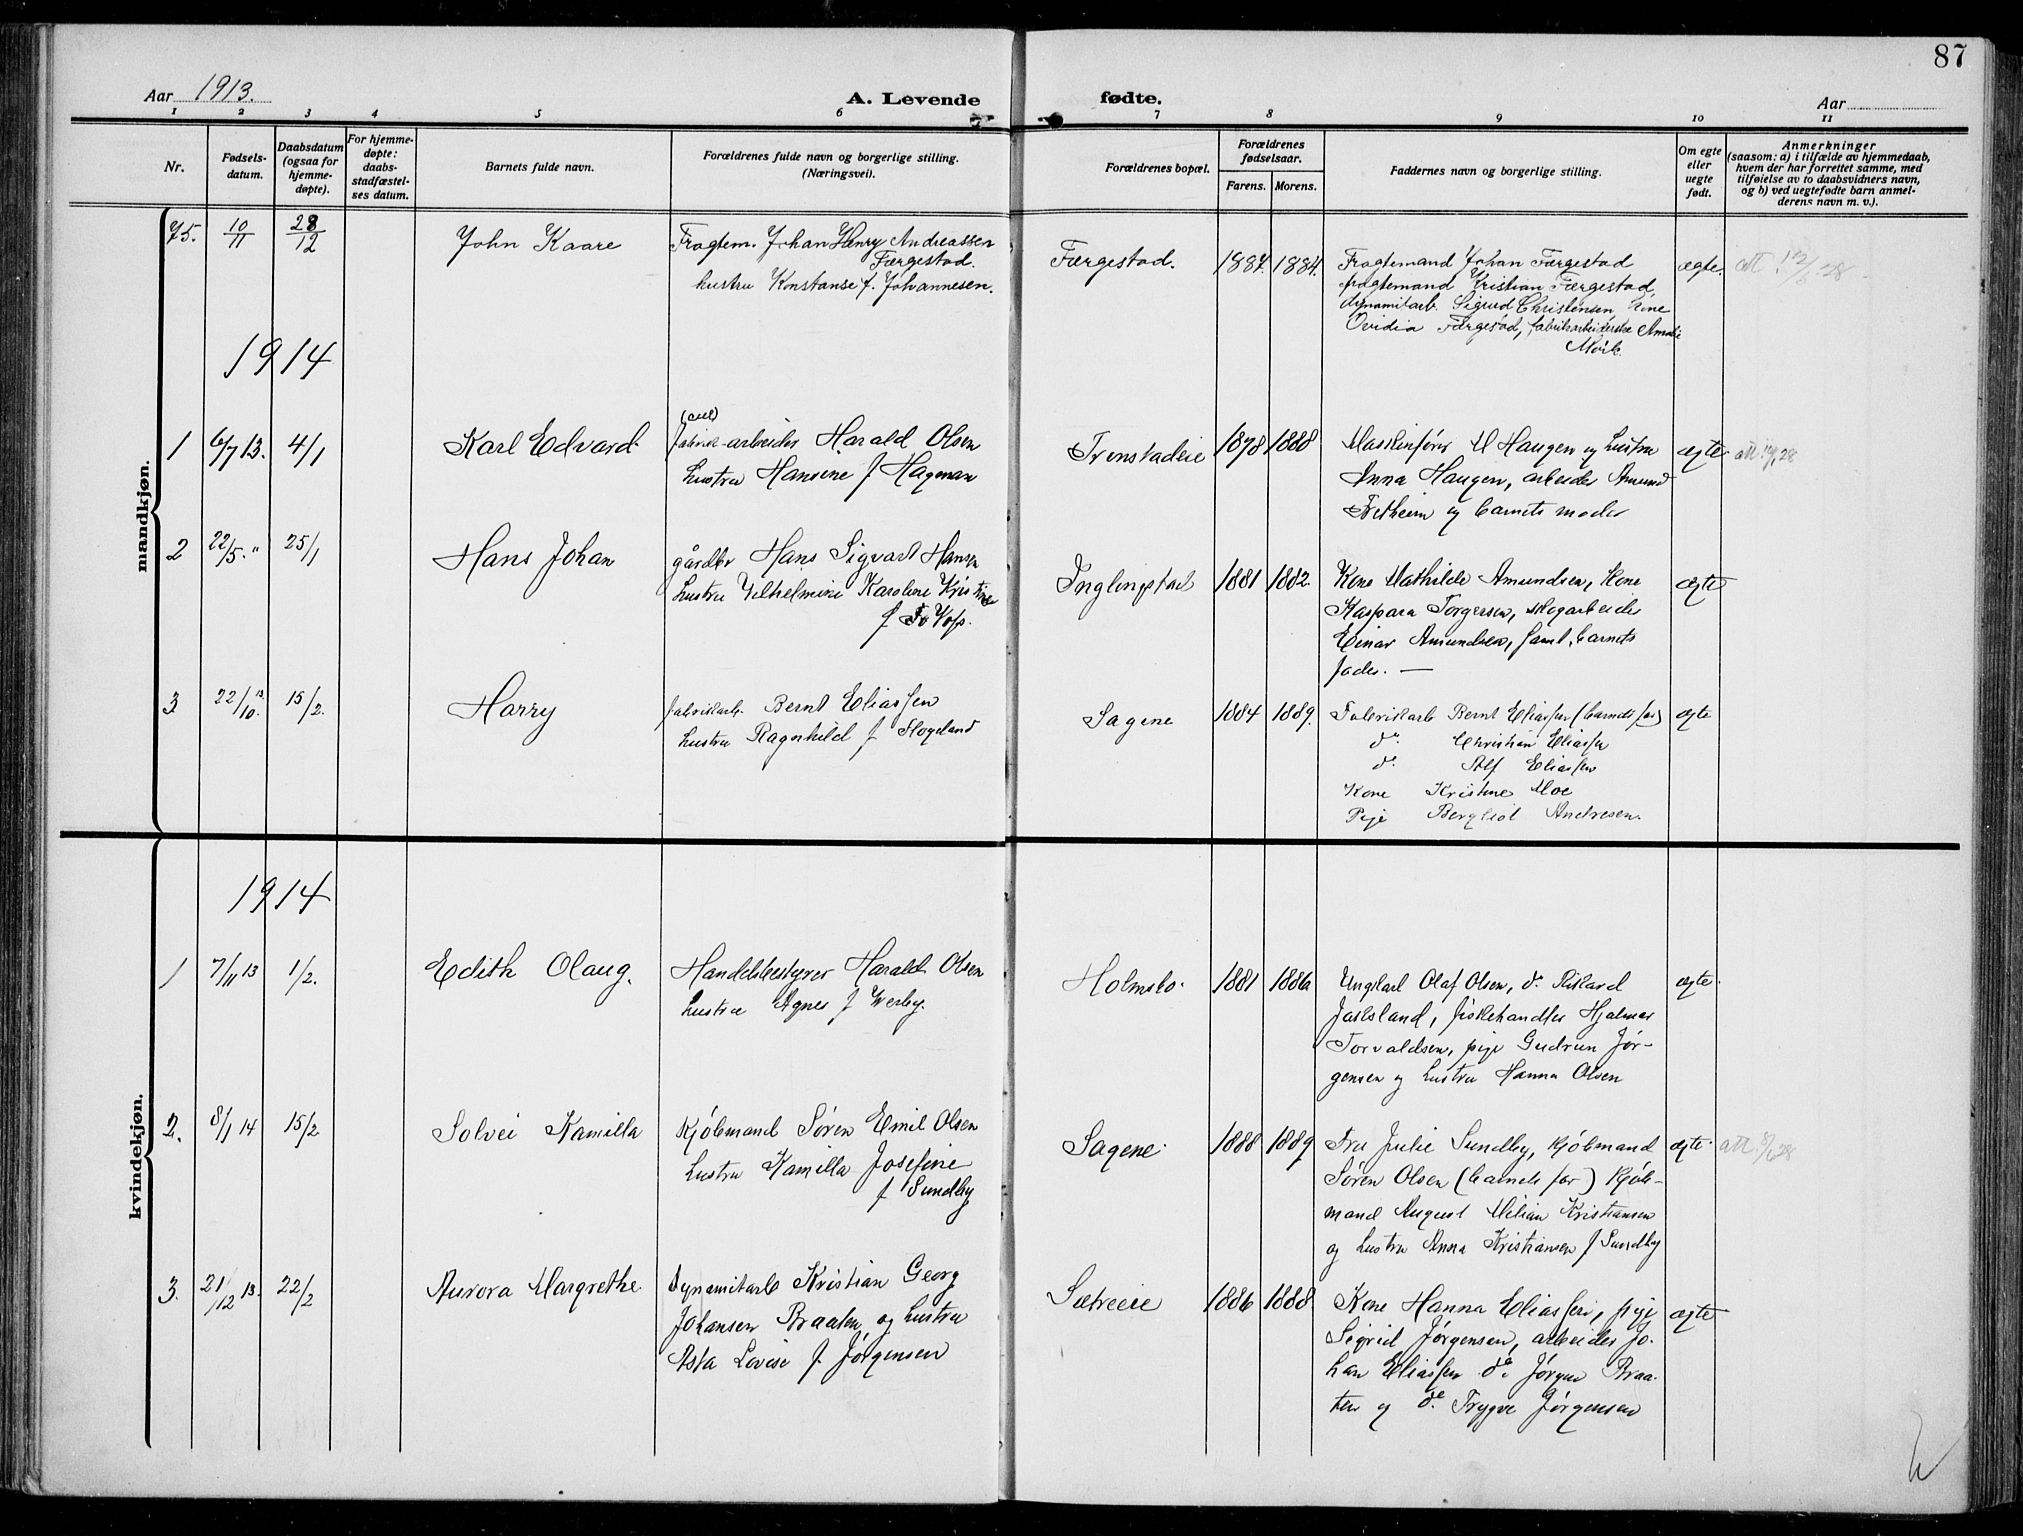 87
Aar 1913.
A. Levende fødte.
Aar
1 2 3 4 5 6 7 8 9 10 11
Nr.
Fødsels-
datum.
Daabsdatum
(ogsaa for
hjemme-
døpte).
For hjemme-
døpte:
daabs-
stadfæstel-
ses datum.
Barnets fulde navn.
Forældrenes fulde navn og borgerlige stilling.
(Næringsvei).
Forældrenes bopæl.
Forældrenes
fødselsaar.
Farens. Morens.
Faddernes navn og borgerlige stilling.
Om egte
eller
uegte
født.
Anmerkninger
(saasom: a) i tilfælde av hjemmedaab,
hvem der har forrettet samme, med
tilføielse av to daabsvidners navn,
og b) ved uegtefødte barn anmel-
derens navn m. v.).
mandkjøn.
75. 10/11 28/12 John Kaare
Fragtem. Johan Henry Andreassen
Færgestad.
hustru Konstanse f. Johannesen.
Færgestad. 1884. 1884.
Fragtemand Johan Færgestad
fragtemand Kristian Færgestad
dynamitarb. Sigurd Christensen, kone
Ovidia Færgestad, fabrikarbeiderske Amalie
Mørk.
ægte. att. 12/6 28
1914
1 6/7 13. 4/1 Karl Edvard
fabrikarbeider Harald Olsen
hustru Hansine f Hageman
1878 1888
Maskinfører M Haugen og hustru
Anna Haugen, arbeider Amund
Fretheim og barnets moder
ægte
2 22/5. " 25/1 Hans Johan
gårdbr Hans Sigvart Hansen
hustru Vilhelmine Karoline Kristine
Inglingstad 1881 1882.
Kone Mathilde Amundsen, kone
Kaspara Torgersen, skogarbeider
Einar Amundsen, samt barnets
fader. —
ægte
3 22/10. 13. 15/2. Harry
fabrikarb. Bernt Eliassen
hustru Ragnhild f Skogeland
Sagene 1884 1889.
Fabrikarb Bernt Eliassen (barnets far)
do. Christian Eliassen
do. Alf Eliassen
Kone Kristine Moe
Pige Bergliot Andresen.
ægte
kvindekjøn.
1914
1 7/11 13 1/2. Edith Olaug.
Handelsbestyrer Harald Olsen
hustru Agnes f Verby.
Holmsbo. 1881 1886
Ungkarl Olaf Olsen, do. Rikard
Jarlsland, fiskehandler Hjalmar
Torvaldsen, pige Gudrun Jør-
gensen og hustru Hanna Olsen
ægte.
2. 8/1 14 15/2 Solvei Kamilla
Kjøbmand Søren Emil Olsen
hustru Kamilla Josefine
f Sundby
Sagene. 1888 1889
Fru Julie Sundby, kjøbmand
Søren Olsen (barnets far) kjøb-
mand August Milian Kristiansen
og hustru Anna Kristiansen f Sundby
ægte.
3. 21/12 13. 22/2 Aurora Margrethe
Dynamitarb Kristian Georg
Johansen Braaten og hustru
Asta Lovise f. Jørgensen
Sætreeie 1886 1888.
Kone Hanna Eliassen, pige
Sigrid Jørgensen, arbeider Jo-
han Eliassen do. Jørgen Braa-
ten og do. Trygve Jørgensen
ægte